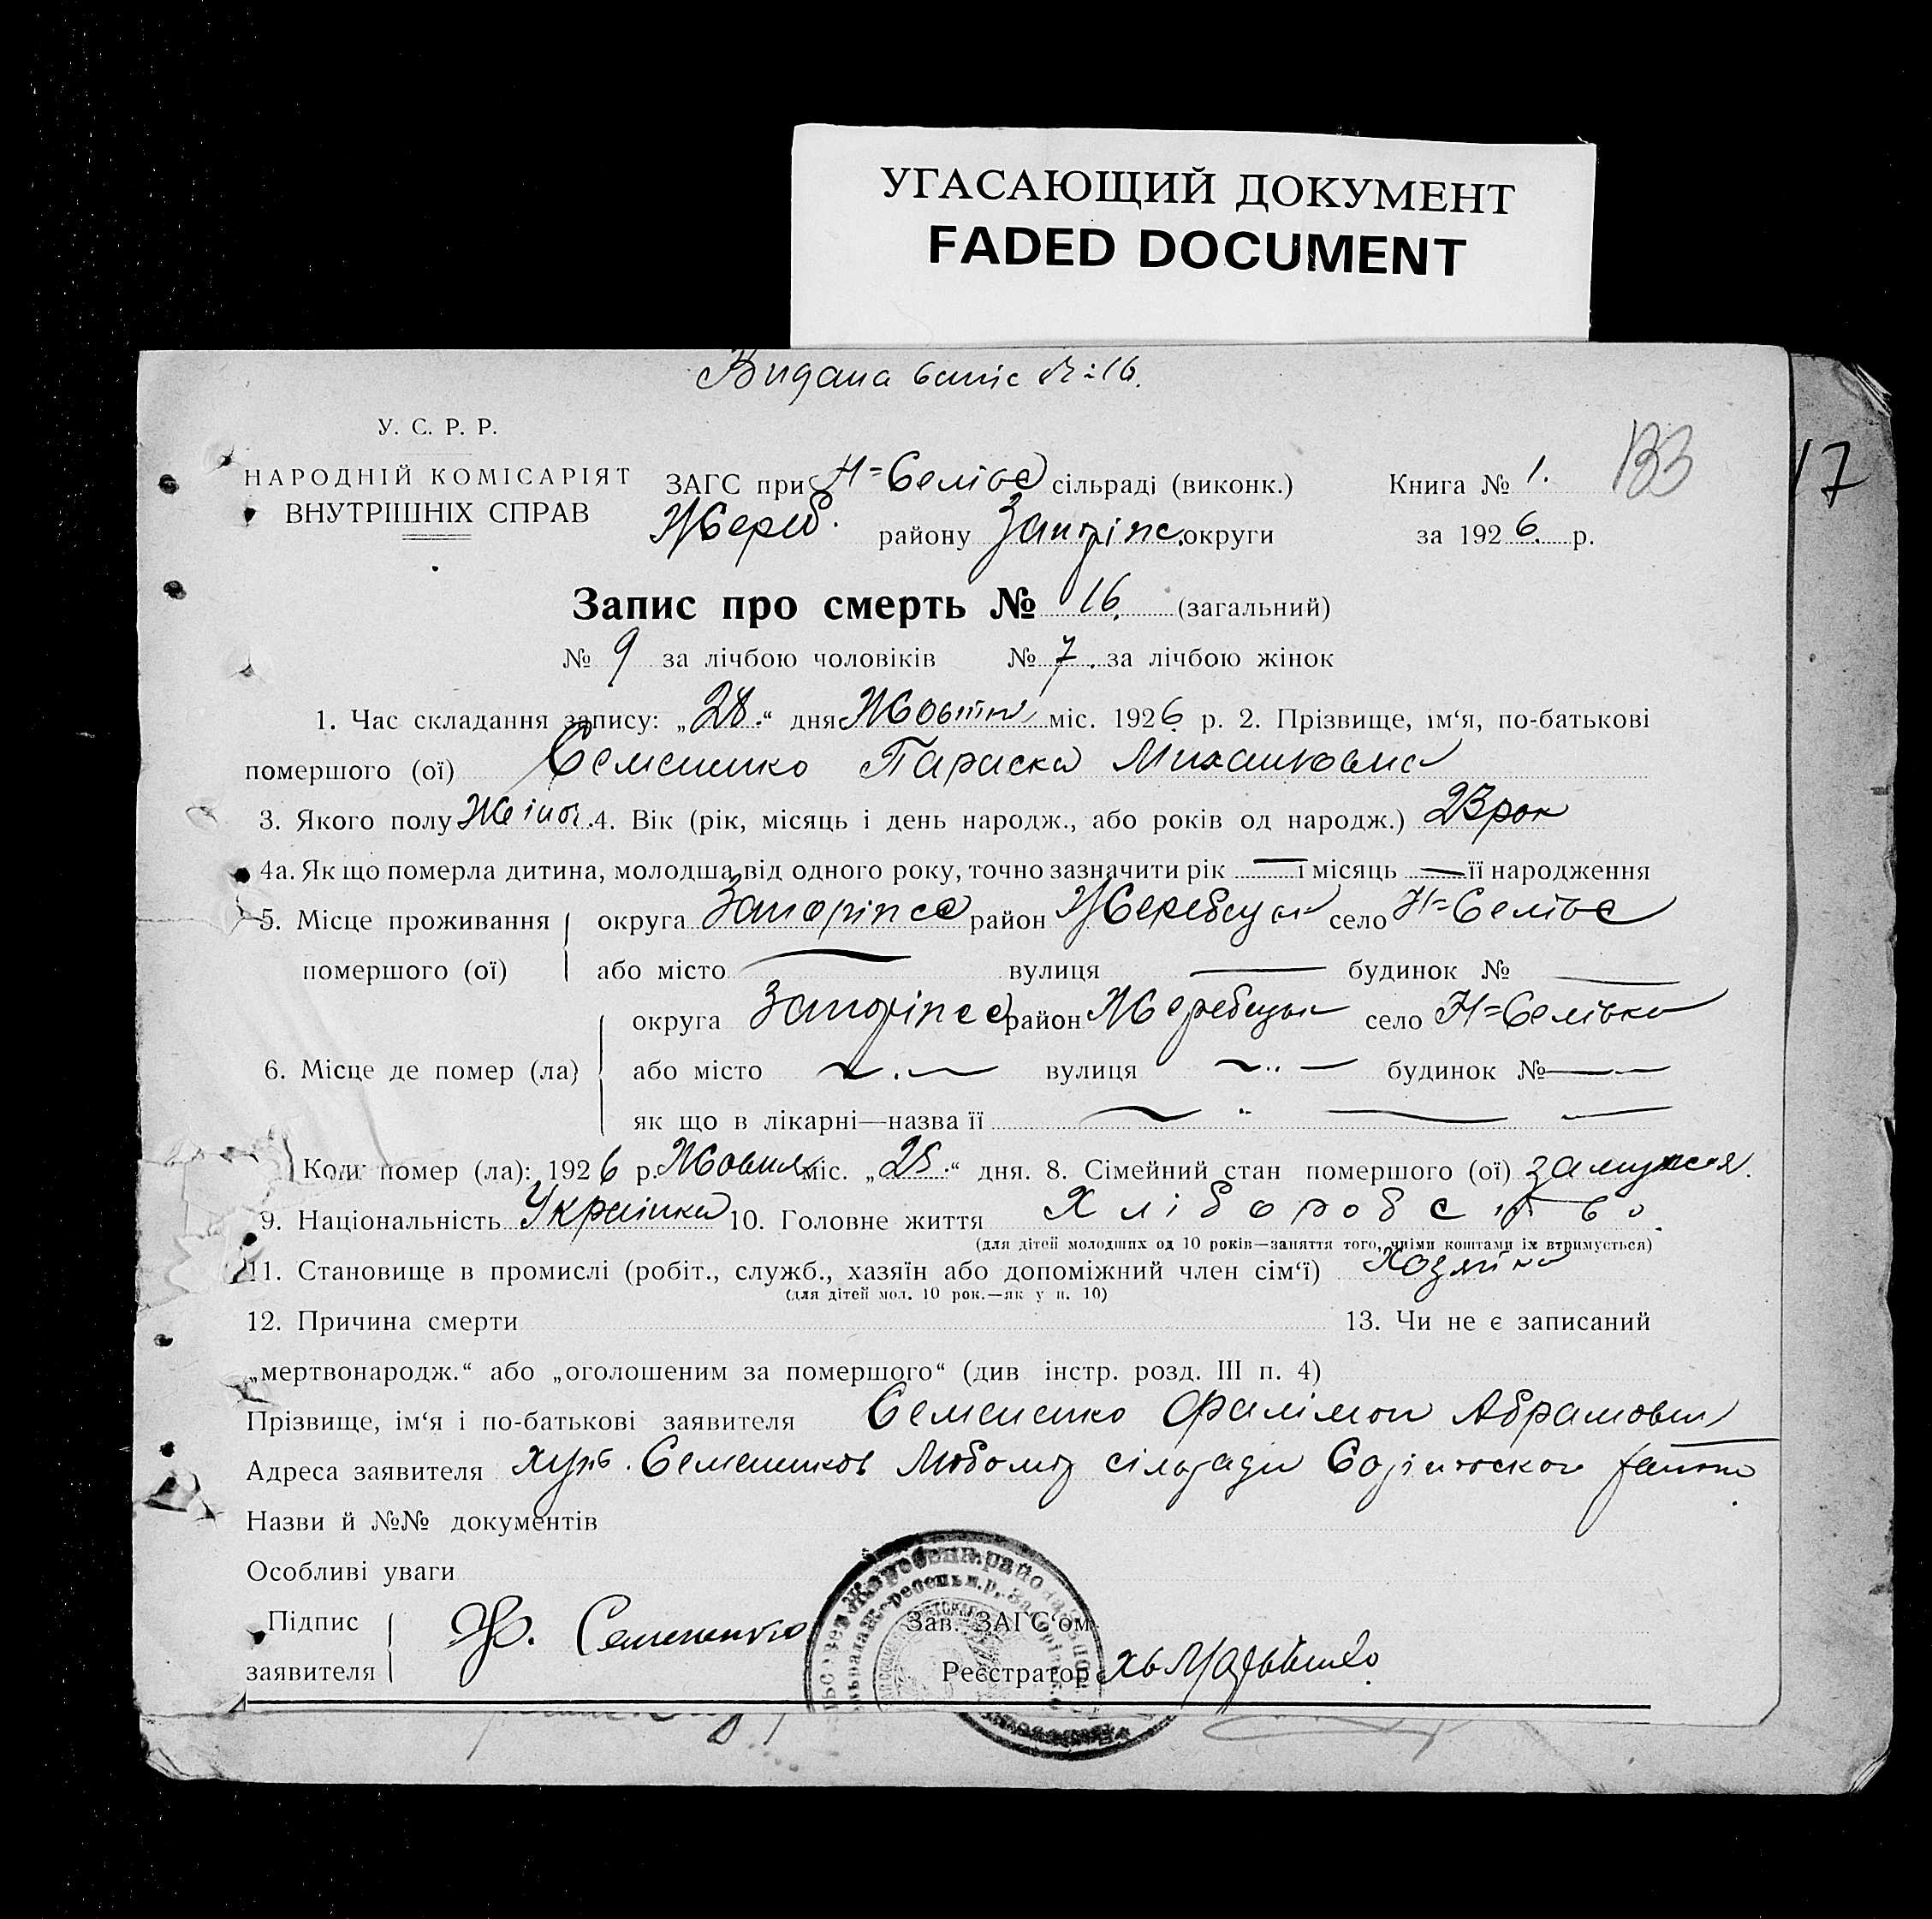 УГАСАЮЩИЙ ДОКУМЕНТ
FADED DOCUMENT
Видана №16.
У. С. Р. Р.
НАРОДНІЙ КОМІСАРІЯТ
ВНУТРІШНІХ СПРАВ
ЗАГС при сільраді (виконк.)
Жереб. району округи
Книга № 1.
за 1926. р.
133
17
Запис про смерть № 16. (загальний)
№ 9 за лічбою чоловіків № 7. за лічбою жінок
1. Час складання запису: „28.“ дня Жовтн міс. 1926 р. 2. Прізвище, ім‘я, по-батькові
помершого (ої) Семененко Параска Михайловна
3. Якого полу Жіноч. 4. Вік (рік, місяць і день народж., або років од народж.) 23 рок
4а. Як що померла дитина, молодша від одного року, точно зазначити рік — і місяць — її народження
5. Місце проживання округа район Жеребецьк село
помершого (ої) або місто — вулиця — будинок № —
округа район Жеребецьк село Н=Селівка
6. Місце де помер (ла) або місто — вулиця — будинок № —
як що в лікарні—назва її —
Коли помер (ла): 1926 р. Жовтня міс. „25.“ дня. 8. Сімейний стан помершого (ої) замужня.
9. Національність Українка 10. Головне життя Хліборобство.
(для дітей молодших од 10 років—заняття того, чиїми коштами їх втримується)
11. Становище в промислі (робіт., служб., хазяїн або допоміжний член сім‘ї) Хозяйка
(для дітей мол. 10 рок.—як у п. 10)
12. Причина смерти 13. Чи не є записаний
„мертвонародж.“ або „оголошеним за помершого“ (див інстр. розд. III п. 4)
Прізвище, ім‘я і по-батькові заявителя Семененко Филімон Абрамович
Адреса заявителя хут. Семененков сільради
Назви й №№ документів
Особливі уваги
Підпис
заявителя Ф. Семененко
Зав. ЗАГС‘ом
Реєстратор